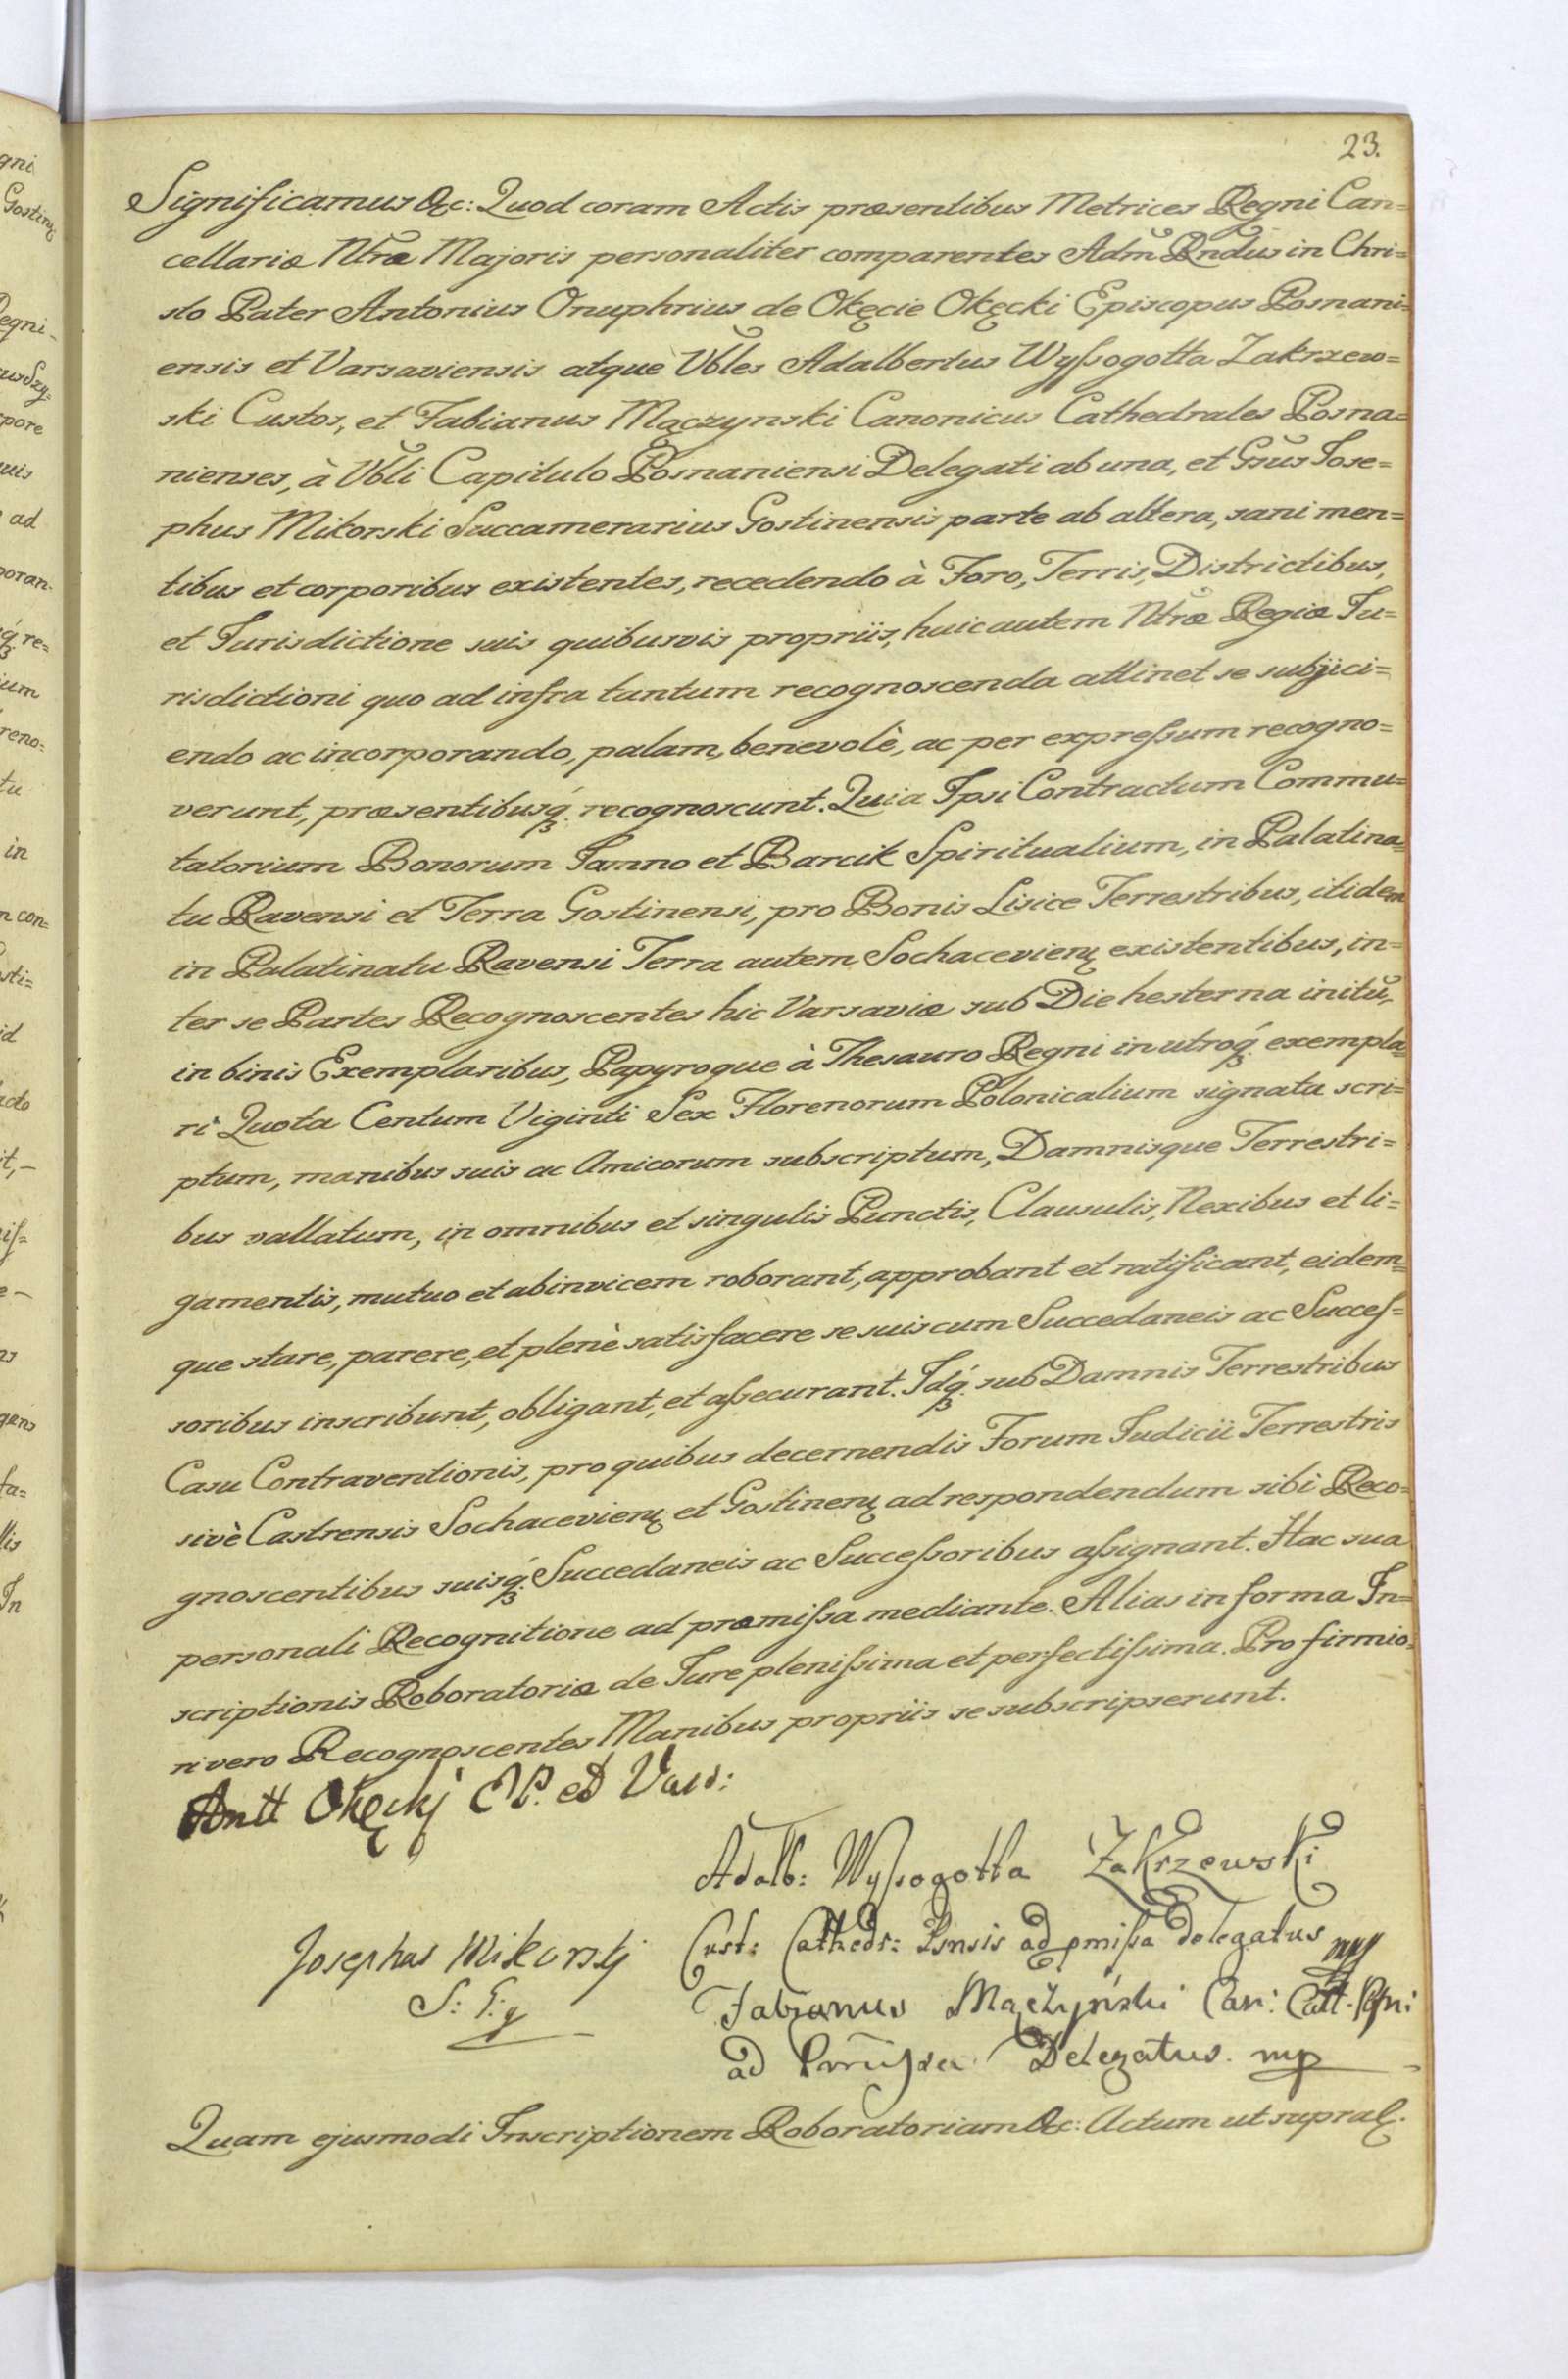 23.
Significamus &c: Quod coram Actis præsentibus Metrices Regni Can=
cellariæ Ntræ Majoris personaliter comparentes Adm̃ Rndus in Chri=
sto Pater Antonius Onuphrius de Okęcie Okęcki Episcopus Posnani=
ensis et Varsaviensis atque Vbles Adalbertus Wyſsogotta Zakrzew=
ski Custos, et Fabianus Mączynski Canonicus Cathedrales Posna=
nienses, à Vbli Capitulo Posnaniensi Delegati ab una, et Gsũs Jose=
phus Mikorski Succamerarius Gostinensis parte ab altera, sani men=
tibus et corporibus existentes, recedendo à Foro, Terris, Districtibus,
et Jurisdictione suis quibusvis propriis, huic autem Ntræ Regiæ Ju=
risdictioni quo ad infra tantum recognoscenda attinet se subjici=
endo ac incorporando, palam, benevolè, ac per expreſsum recogno=
verunt, præsentibusq́ꝫ recognoscunt. Quia Ipsi Contractum Commu=
tatorium Bonorum Jamno et Barcik Spiritualium, in Palatina=
tu Ravensi et Terra Gostinensi, pro Bonis Lisice Terrestribus, itidem
in Palatinatu Ravensi Terra autem Sochacevienę existentibus, in=
ter se Partes Recognoscentes hic Varsaviæ sub Die hesterna initũ,
in binis Exemplaribus, Papyroque à Thesauro Regni in utroq́ꝫ exempla=
ri Quota Centum Viginti Sex Florenorum Polonicalium signata scri=
ptum, manibus suis ac Amicorum subscriptum, Damnisque Terrestri=
bus vallatum, in omnibus et singulis Punctis, Clausulis, Nexibus et li=
gamentis, mutuo et abinvicem roborant, approbant et ratificant, eidem=
que stare, parere, et plenè satisfacere se suis cum Succedaneis ac Succeſ=
soribus inscribunt, obligant, et aſsecurant. Idq́ꝫ sub Damnis Terrestribus
Casu Contraventionis, pro quibus decernendis Forum Judicii Terrestris
sivè Castrensis Sochacevienę et Gostinenę ad respondendum sibi Reco=
gnoscentibus suisq́ꝫ Succedaneis ac Succeſsoribus aſsignant. Hac sua
personali Recognitione ad præmiſsa mediante. Alias in forma In=
scriptionis Roboratoriæ de Jure pleniſsima et perfectiſsima. Pro firmio=
ri vero Recognoscentes Manibus propriis se subscripserunt.
Antt Okęckj E P. et Vars:
Adalb: Wyſsogotta Zakrzewski
Cust: Cathedr: Psnsis ad pmiſsa delegatus mp
Josephus Mikorskj
S: G:
Fabianus Mączyński Can: Catt. Psni
ad Pmiſsa Delegatus. mp
Quam ejusmodi Inscriptionem Roboratoriam &c: Actum ut supra